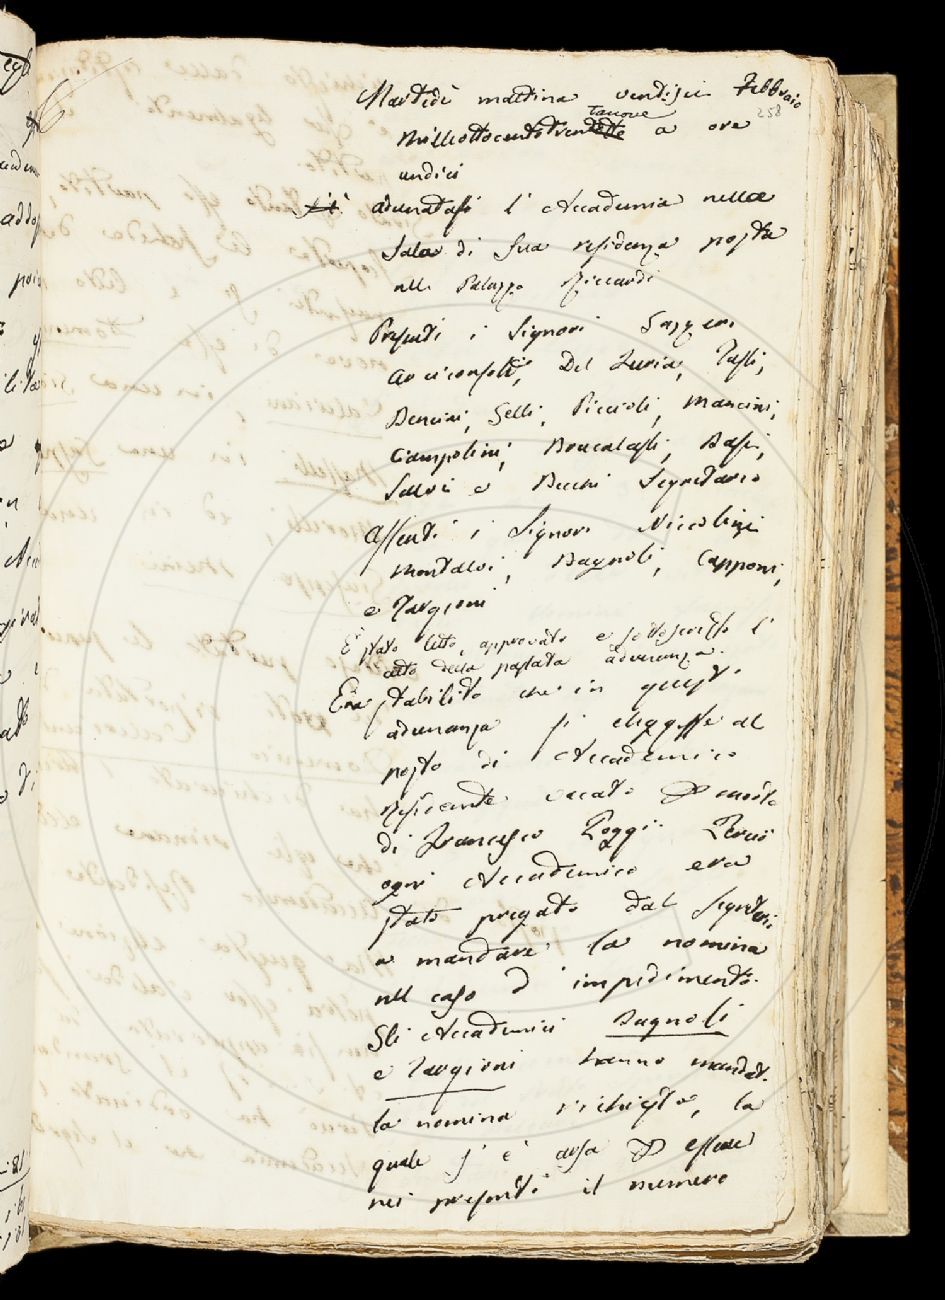 Martedì mattina ventisei Febbraio
258
Milleottocentotrentasette tanove a ore
undici
adunatasi l'Accademia nella
Sala di sua residenza posta
nel Palazzo Riccardi
Presenti i Signori Gazzeri
Arciconsolo, Del Furia, Tassi,
Bencini, Gelli, Piccioli, Mancini,
Ciampolini, Boucalassi, Bassi,
Salvi e Becchi Segretario
Assenti i Signori Niccolini
Montalvi, Bagnoli, Capponi,
e Targioni
È stato letto, approvato e sottoscritto l'
atto della passata adunanza.
Era stabilito che in questa
adunanza si eleggesse al
posto di Accademico
residente vacato per morte
di Francesco Poggi. Perciò
ogni Accademico era
stato pregato dal Segretari
a mandare la nomina
nel caso d'impedimento.
Gli Accademici Bagnoli
e Targioni hanno mandat.
la nomina richiesta, la
quale s'è arsa per essere
nei presenti il numero